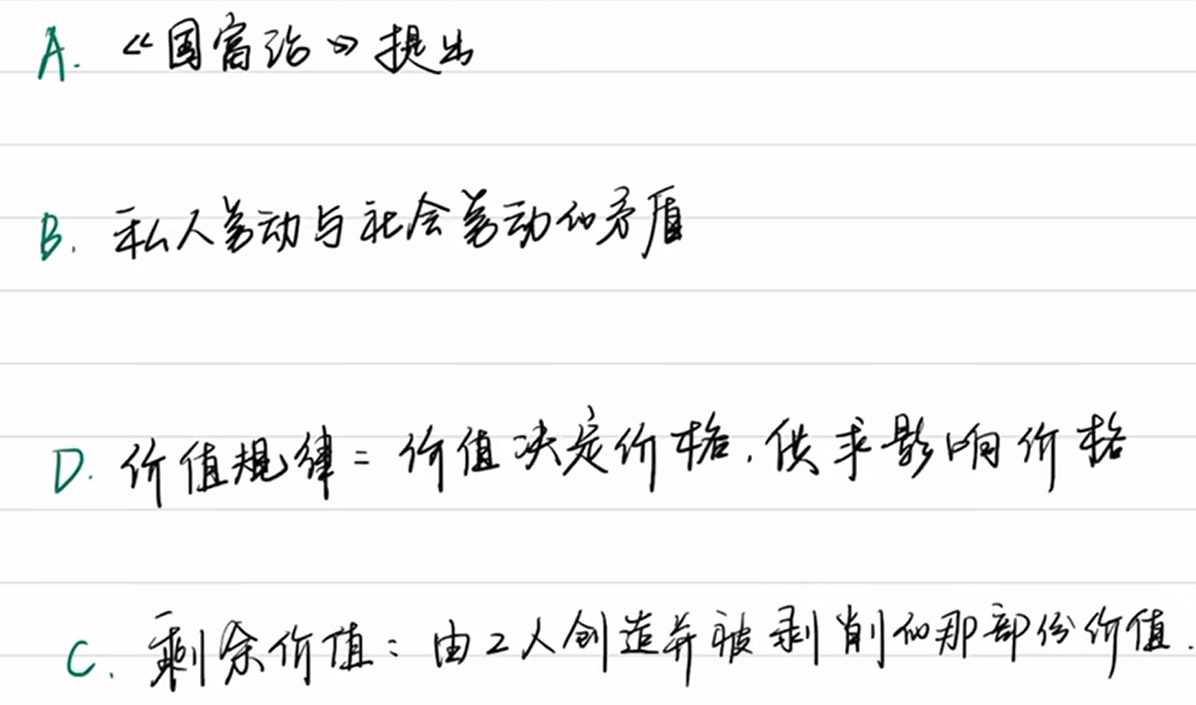 A. 《国富论》提出
B. 私人劳动与社会劳动的矛盾
D. 价值规律 = 价值决定价格. 供求影响价格
C. 剩余价值: 由工人创造并被剥削的那部份价值.